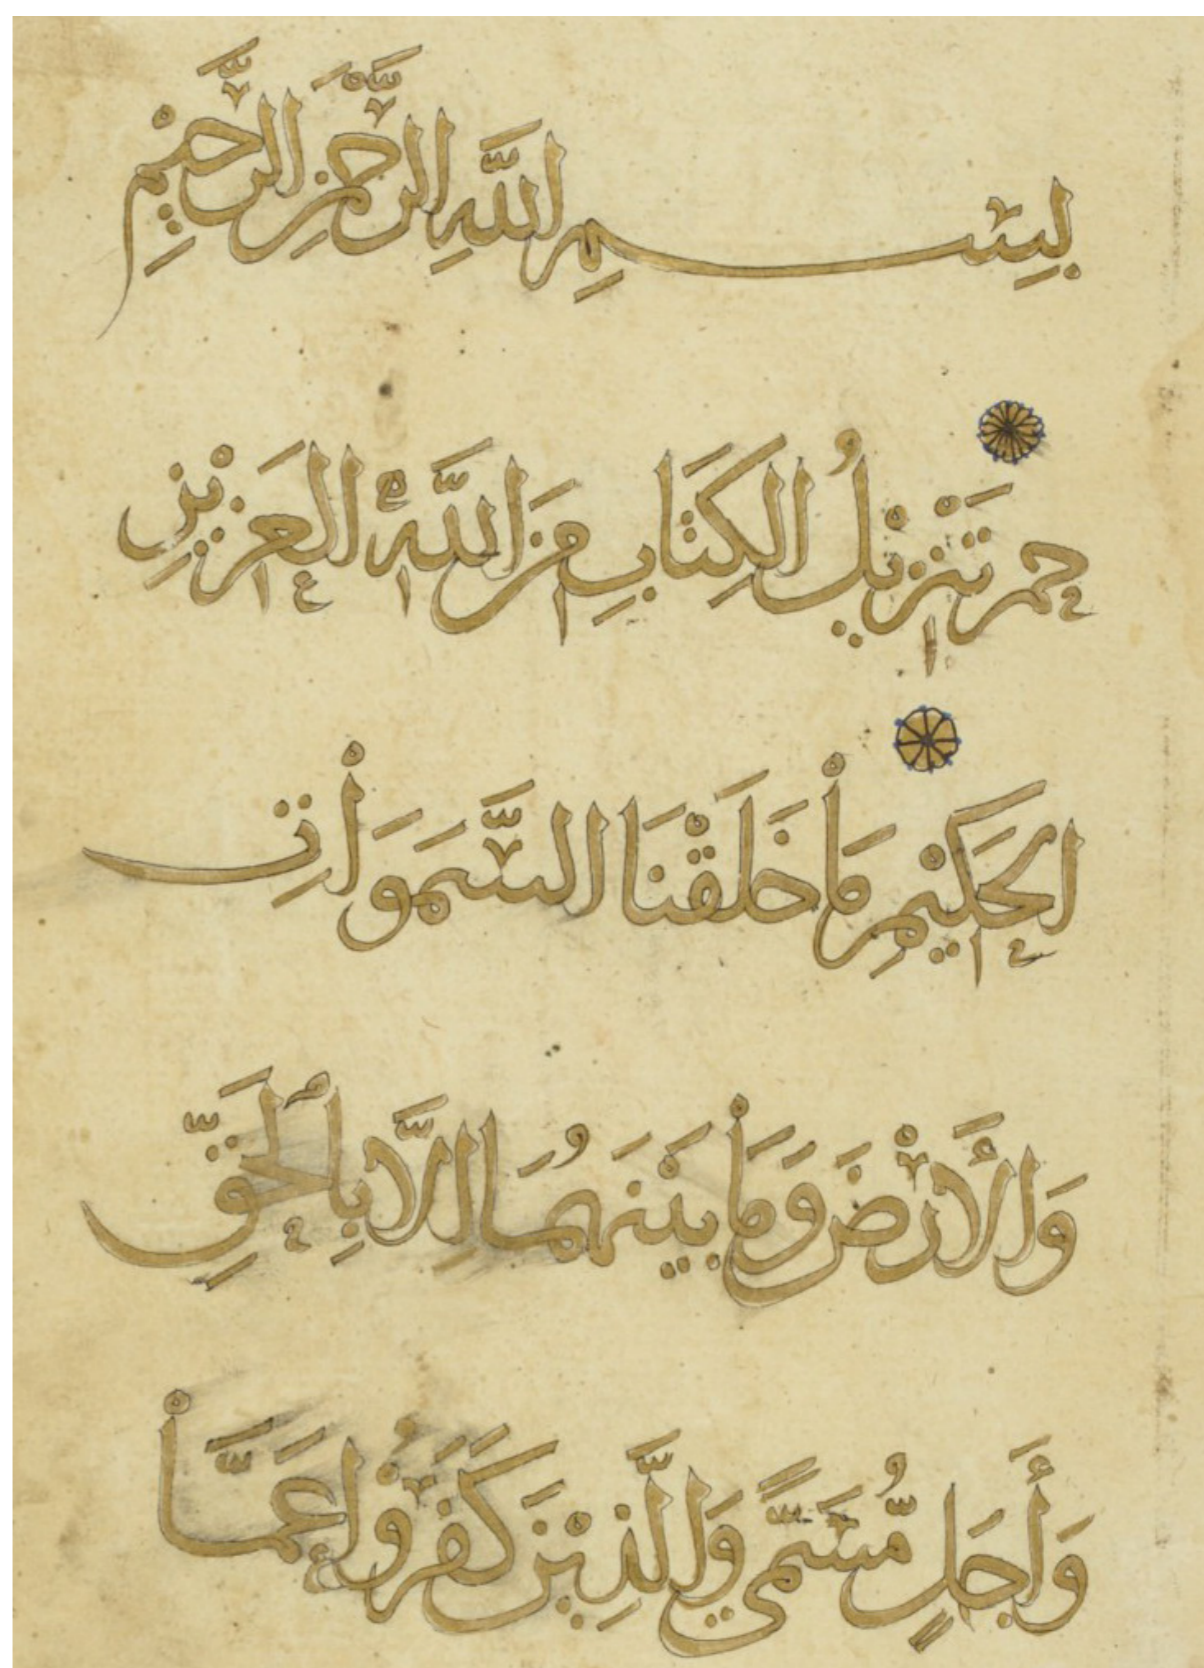 بِسْمِ اللَّهِ الرَّحْمَنِ الرَّحِيْمِ
حم تَنْزِيْلُ الكِتَابِ مِنَ اللَّهِ العَزِيْزِ
الحَكِيْمِ مَا خَلَقْنَا السَّمَوَاتِ
وَالأَرْضَ وَمَا بَيْنَهُمَا إِلَّا بِالحَقِّ
وَأَجَلٍ مُّسَمًّى وَالَّذِيْنَ كَفَرُوْا عَمَّا